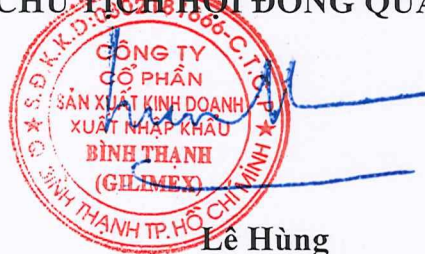 CHỦ TỊCH HỘI ĐỒNG QUẢ
S.Đ.K.K.D:0302181666-C.T.C.P
CÔNG TY
CỔ PHẦN
SẢN XUẤT KINH DOANH
XUẤT NHẬP KHẨU
BÌNH THẠNH
(GILIMEX)
Q. BÌNH THẠNH TP. HỒ CHÍ MINH
Lê Hùng